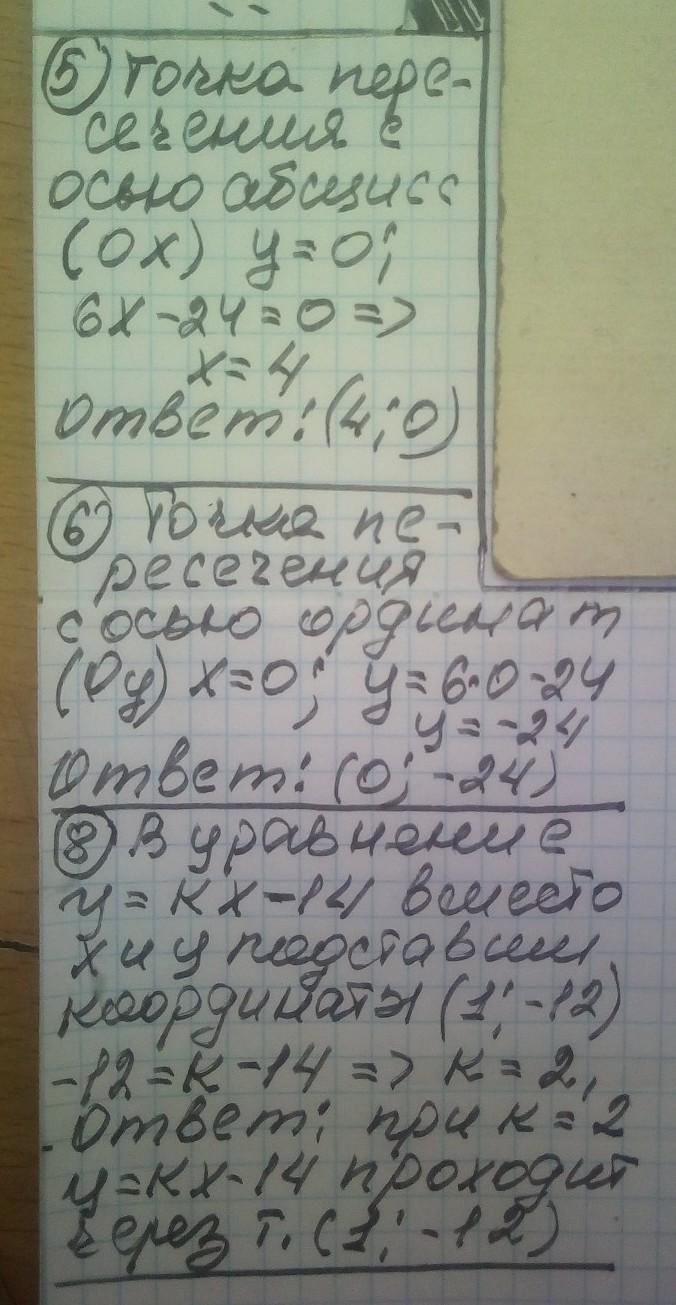 ⑤ Точка пере-
сечения с
осью абсцисс
(Ох) у=0;
6х-24=0 =>
х=4
Ответ: (4; 0)
⑥ Точка пе-
ресечения
с осью ординат
(Оу) х=0; у=6·0-24
у=-24
Ответ: (0; -24)
⑧ В уравнение
у=кх-14 вместо
х и у подставим
координаты (1; -12)
-12=к-14 => к=2,
Ответ: при к=2
у=кх-14 проходит
через т. (1; -12)